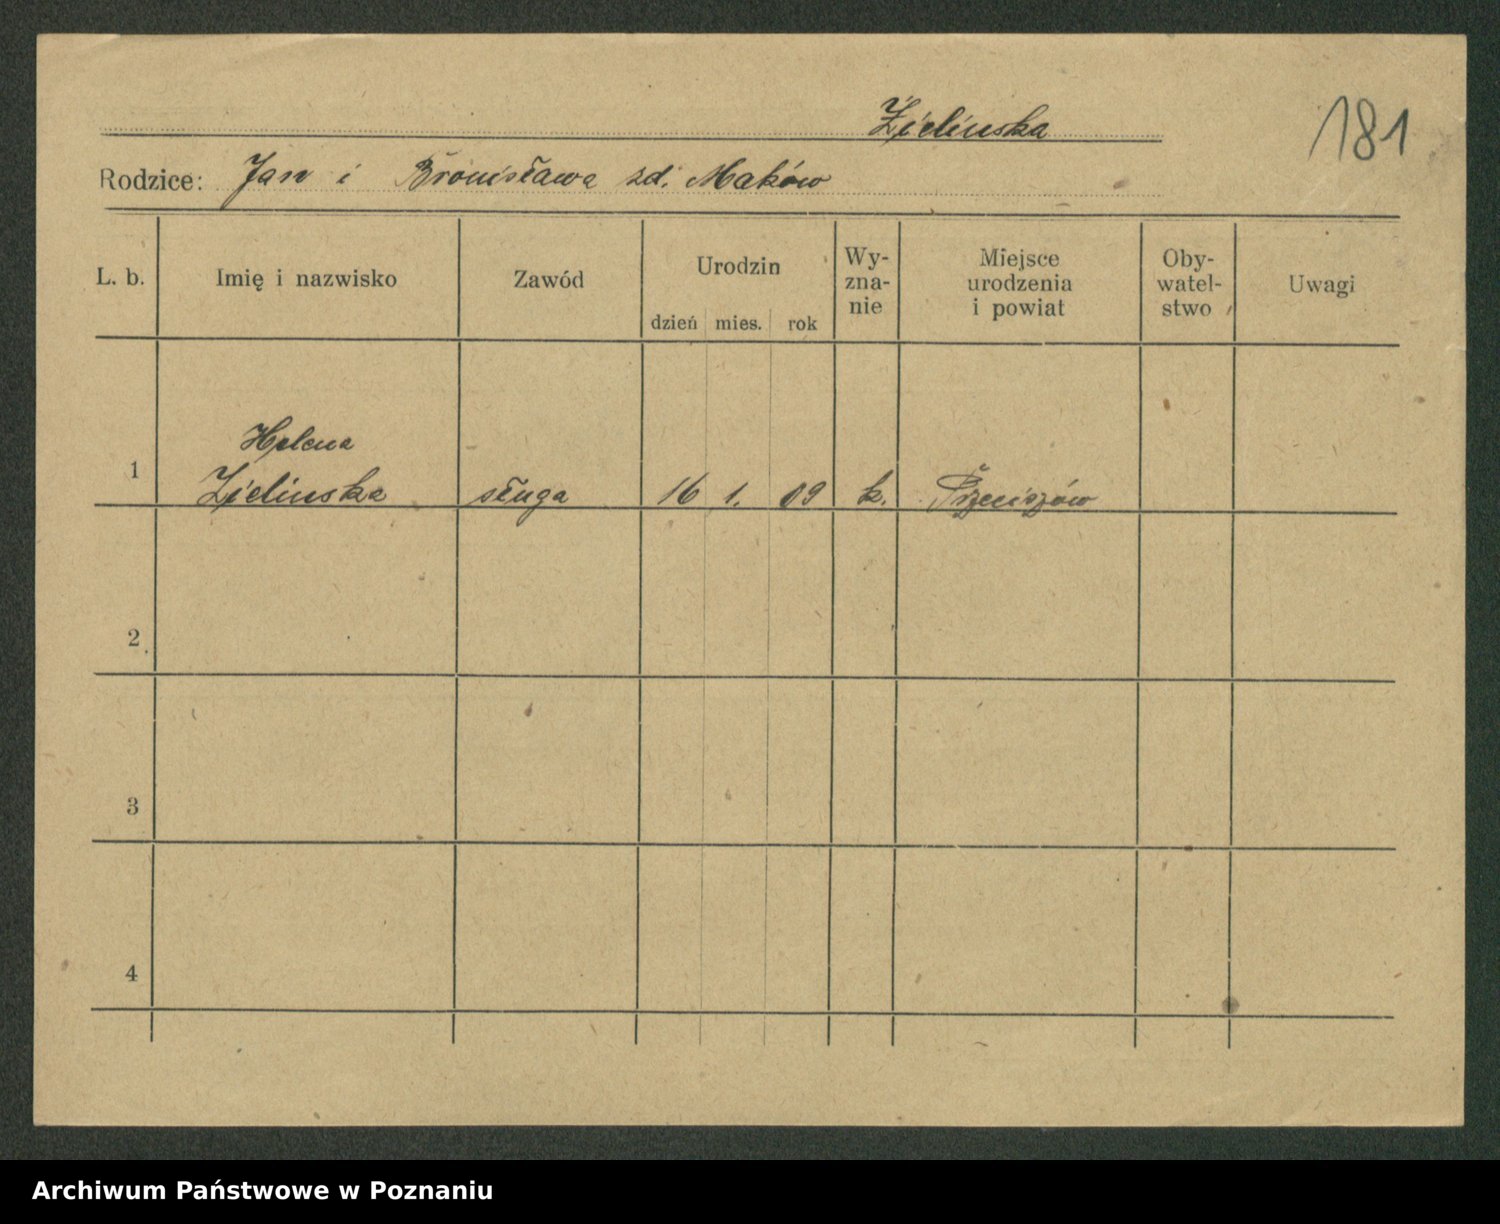 Zielinska
181
Rodzice: Jan i Bronisława zd. Maków
L. b. Imię i nazwisko Zawód Urodzin dzień mies. rok Wy-zna-nie Miejsce urodzenia i powiat Oby-watel-stwo Uwagi
Helena
1 Zielinska sługa 16 1. 09 k.
2
3
4
Archiwum Państwowe w Poznaniu